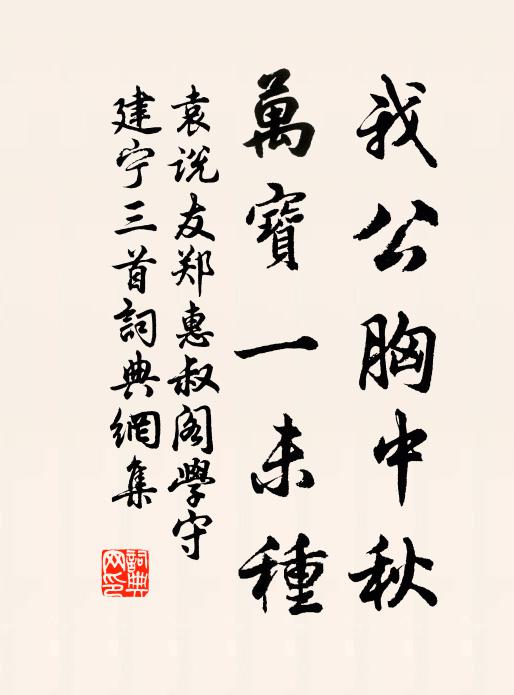 我公胸中秋
萬寶一未種
袁说友郑惠叔阁學守
建宁三首詞典網集
詞典
网印